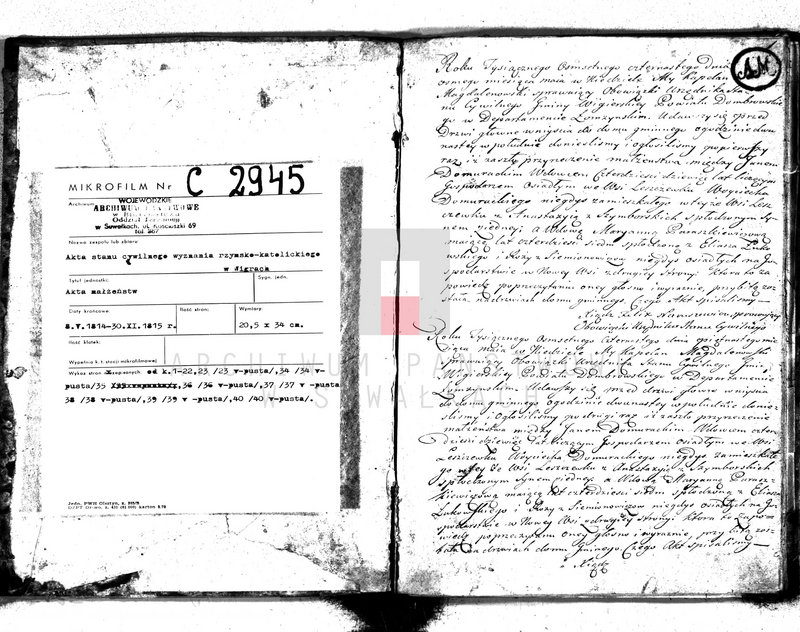 MIKROFILM Nr C 2945
Archiwum
WOJEWÓDZKIE
ARCHIWUM PAŃSTWOWE
w Białymstoku
w Suwałkach, ul. Kościuszki 69
tel. 967
Nazwa zespołu lub zbioru:
Akta stanu cywilnego wyznania rzymsko-katolickiego
w Wigrach
Tytuł jednostki: Sygn. jedn.
Akta małżeństw
Daty krańcowe: Ilość stron: Wymiary:
8.V.1814-30.XI.1815 r. 20,5 x 34 cm.
Ilość klatek:
Wypełnia k.t. stacji mikrofilmowej
Wykaz stron od k.1-22,23 /23 v-pusta/,34 /34 v-
pusta/35 ,36 /36 v-pusta/,37 /37 v -pusta
38 /38 v-pusta/,39 /39 v -pusta/,40 /40 v-pusta/.
ARCHIWUM
W SUWAŁKACH
AM
Roku Tysiącznego Osmsetnego czternastego dnia
osmego miesiąca maia w Niedziele My Kapelan
Magdalenowski sprawuiący Obowiązki Urzędnika Sta
nu Cywilnego Gminy Wigierskiey Powiatu Dombrowskie
go w Departamencie Łomżynskim. Udawszy się przed
Drzwi główne wniyścia do domu gminnego o godzinie dwu
nastey w południe donieslismy i ogłosilismy po pierwszy
raz iż zaszło przyrzeczenie małżeństwa między Janem
Domurackim Wdowcem Czterdziesci dziewięć lat liczącym
Gospodarzem Osiadłym we Wsi Leszczewku Woyciecha
Domurackiego niegdys zamieszkałego w teyże Wsi Lesz
czewku i Anastazyą z Szymborskich spłodzonym Sy
nem z iedney, a Wdową Maryanną Paraszkiewiczową
maiącą lat czterdziesci siedm spłodzoną z Eliasza Łuko
wskiego i Rozy z Siemionowiczow niegdys osiadłych na Go
spodarstwie w Nowey Wsi z drugiey strony. Ktora to za
powiedź po przeczytaniu oney głosno i wyraznie, przybita zo
stała na drzwiach domu gminnego. Czego Akt spisalismy
Xiądz Felix sprawuiący
Obowiązki Urzędnika Stanu Cywilnego
Roku Tysiącznego Osmsetnego Czternastego dnia piętnastego mie
siąca Maia w Niedziele My Kapelan Magdalenowski
sprawuiący Obowiązki Urzędnika Stanu Cywilnego Gminy
Wigierskiey Powiatu Dombrowskiego w Departamencie
Łomżynskim. Udawszy się przed drzwi główne wniyscia
do domu gminnego o godzinie dwunastey w południe donie
slismy i Ogłosilismy po drugi raz iż zaszło przyrzeczenie
małżeństwa między Janem Domurackim Wdowcem czter
dziesci dziewięć lat liczącym Gospodarzem Osiadłym we Wsi
Leszczewku Woyciecha Domurackiego niegdys zamieszkałe
go w tey że Wsi Leszczewku i Anastazyi z Szymborskich
spłodzonym Synem z iedney, a Wdową Maryanną Parasz
kiewiczową maiącą lat czterdziesci siedm spłodzoną z Eliasza
Łukowskiego i Rozy z Siemionowiczow niegdys osiadłych na Go
spodarstwie w Nowey Wsi z drugiey strony. ktora to zapo
wiedź po przeczytaniu oney głosno i wyraznie, przybita zos
tała na drzwiach domu Gminnego Czego Akt spisalismy
Xiądz